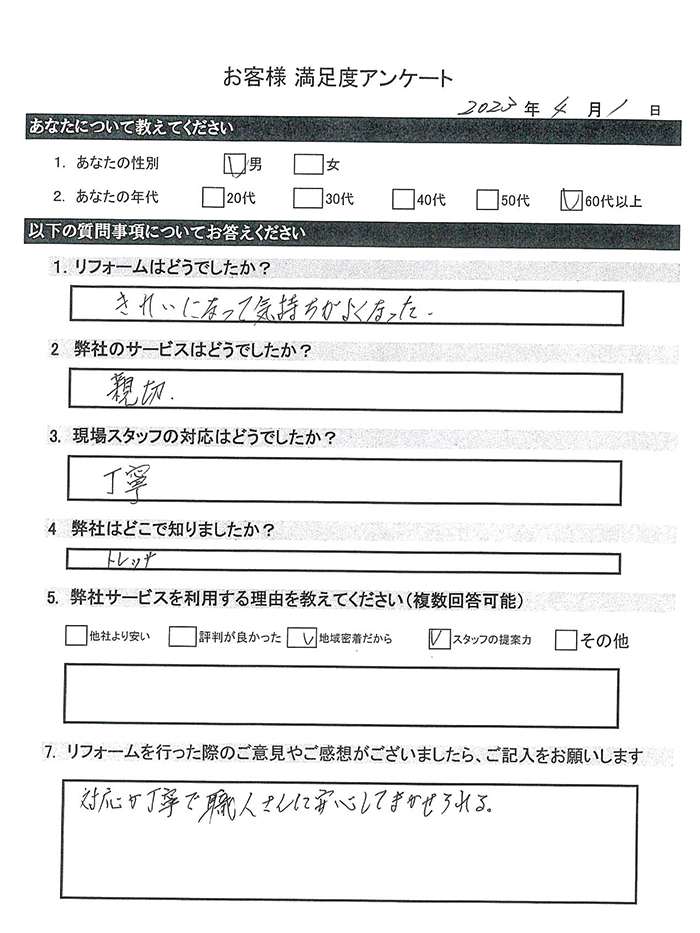 お客様 満足度アンケート
2023年4月1日
あなたについて教えてください
1. あなたの性別 男 女
2. あなたの年代 20代 30代 40代 50代 60代以上
以下の質問事項についてお答えください
1. リフォームはどうでしたか？
きれいになって気持ちがよくなった.
2 弊社のサービスはどうでしたか？
親切.
3. 現場スタッフの対応はどうでしたか？
丁寧
4 弊社はどこで知りましたか？
5. 弊社サービスを利用する理由を教えてください（複数回答可能）
他社より安い 評判が良かった 地域密着だから スタッフの提案力 その他
7. リフォームを行った際のご意見やご感想がございましたら、ご記入をお願いします
対応が丁寧で職人さんに安心してまかせられる。